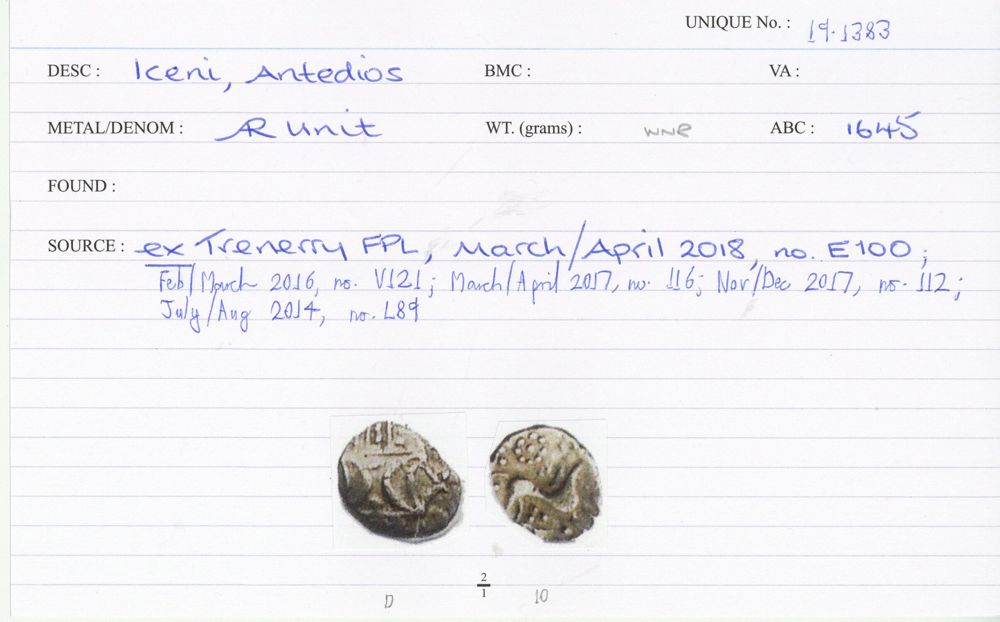 UNIQUE No. : 19.1383
DESC : Iceni, Antedios BMC : VA :
METAL/DENOM : AR Unit WT. (grams) : WNR ABC : 1645
FOUND :
SOURCE : ex Trenerry FPL, March/April 2018, no. E100;
Feb/March 2016, no. V121; March/April 2017, no. 116; Nov/Dec 2017, no. 112;
July/Aug 2014, no. L89
2/1
D 10